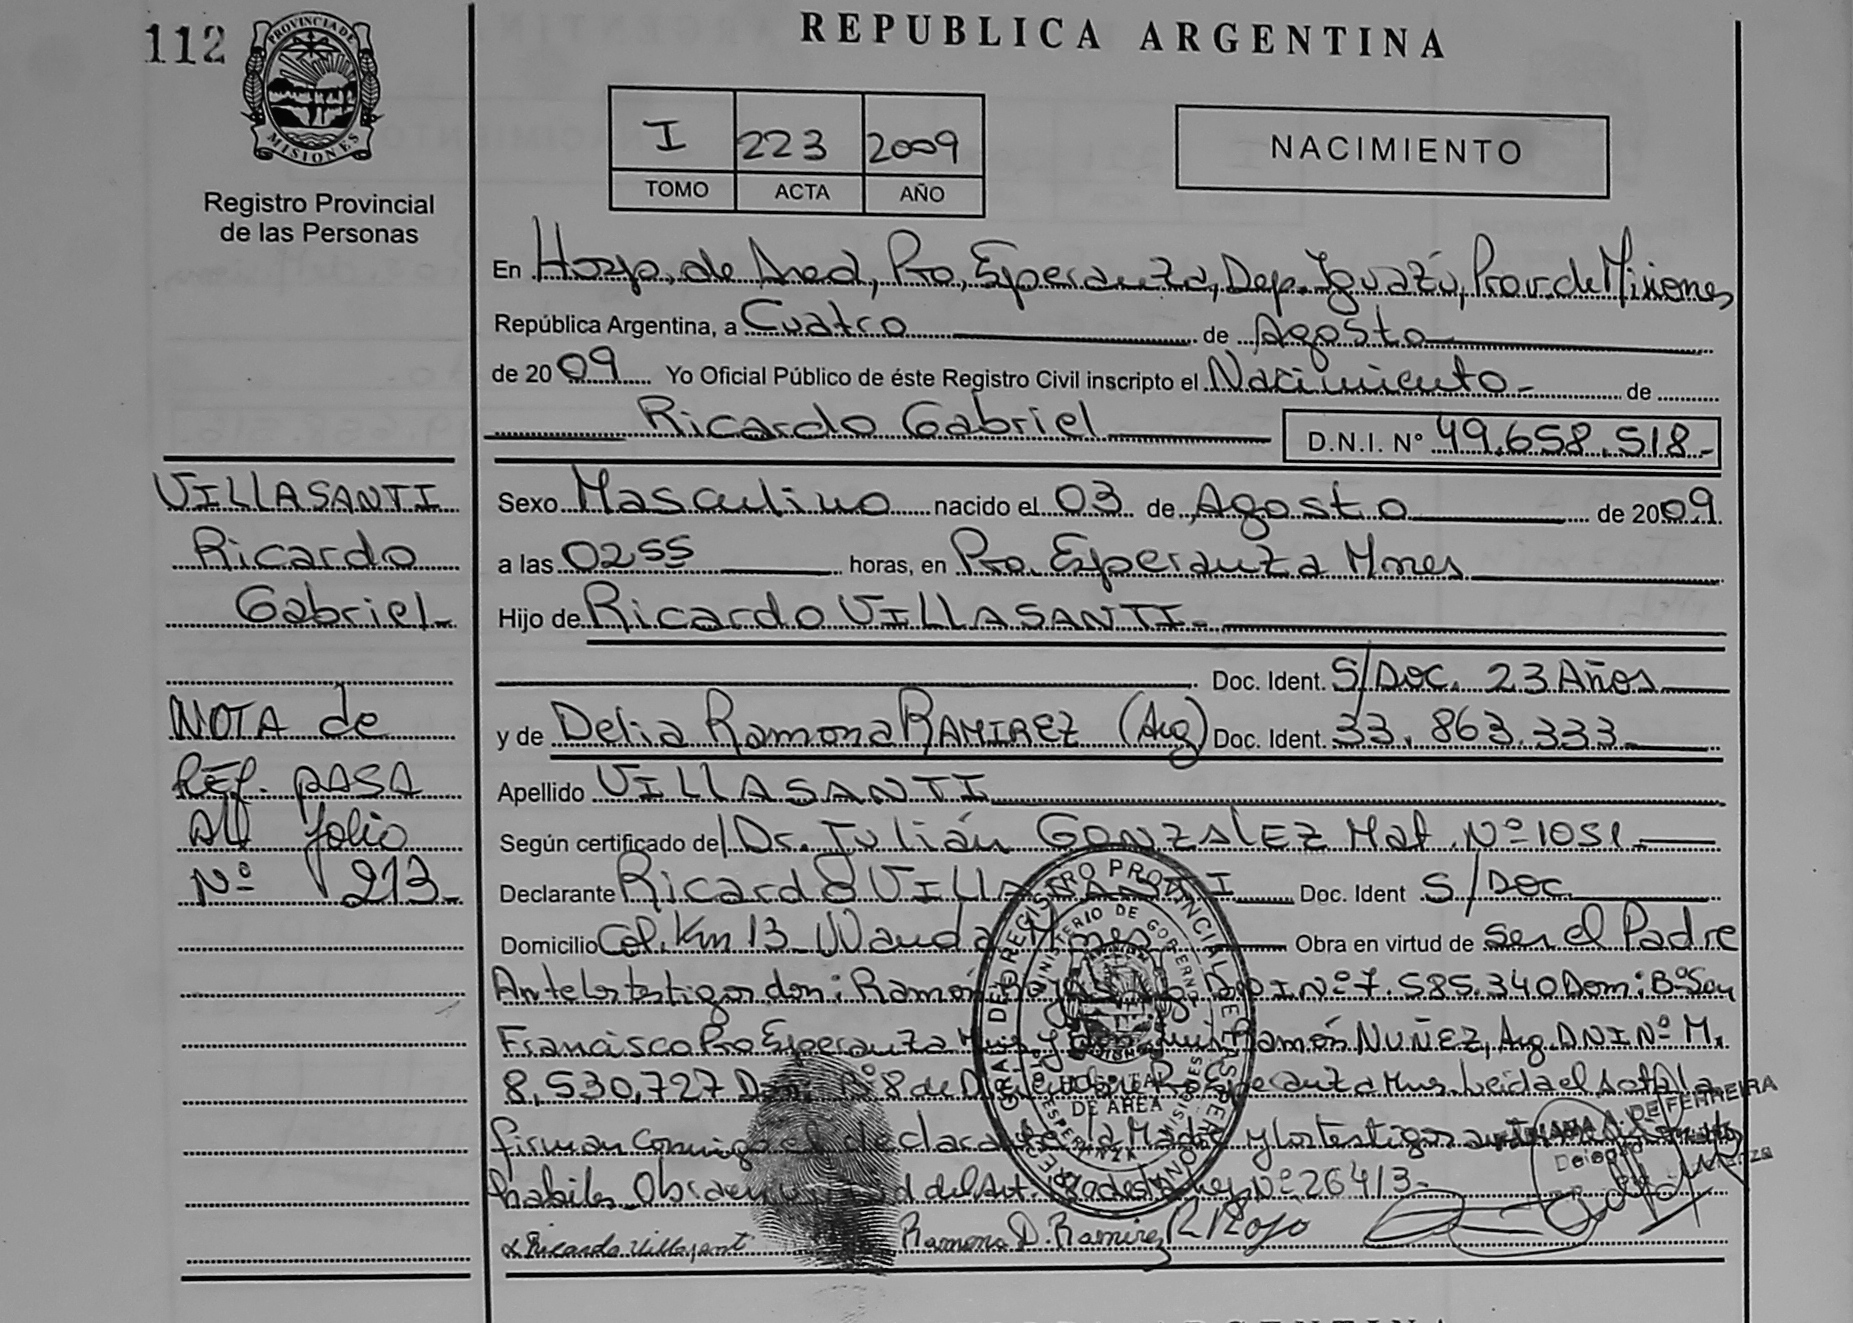 112
PROVINCIA DE
MISIONES
Registro Provincial
de las Personas
REPUBLICA ARGENTINA
I 223 2009
TOMO ACTA AÑO
NACIMIENTO
En Hosp. de Area, Pto, Esperanza, Dep. Iguazú, Prov. de Misiones
República Argentina, a Cuatro de Agosto
de 2009 Yo Oficial Público de éste Registro Civil inscripto el Nacimiento - de
Ricardo Gabriel D.N.I. N° 49.658.518-
Sexo Masculino nacido el 03 de Agosto de 2009
a las 0255 horas, en Pto. Esperanza Mnes
Hijo de Ricardo VILLASANTI-
Doc. Ident. S/Doc. 23 Años
y de Delia Ramona RAMIREZ (Arg) Doc. Ident. 33.863.333
Apellido VILLASANTI
Según certificado de Dr. Julián GONZALEZ Mat. Nº 1051-
Declarante Ricardo VILLASANTI Doc. Ident S/Doc
Domicilio Col. Km 13 Wanda Mnes Obra en virtud de ser el Padre
Ante los testigos don: Ramón Nº 7.585.340 Dom: Bº San
Francisco Pto Esperanza Ramón NUÑEZ, Arg. DNI Nº M.
8,530,727 Bº 8 de Esperanza Mnes. Leida el Acta la
firman conmigo el declarante la Madre y los testigos
habiles Obra en del Art. Ley Nº 26413-
Ricardo Villasanti Ramona D. Ramirez R Rojo
VILLASANTI
Ricardo
Gabriel-
NOTA de
REF. PASA
Al folio
Nº 213-
REGISTRO PROVINCIAL DE LAS PERSONAS
MINISTERIO DE GOBIERNO
HOSPITAL
DE AREA
ESPERANZA
MISIONES
DE FERREIRA